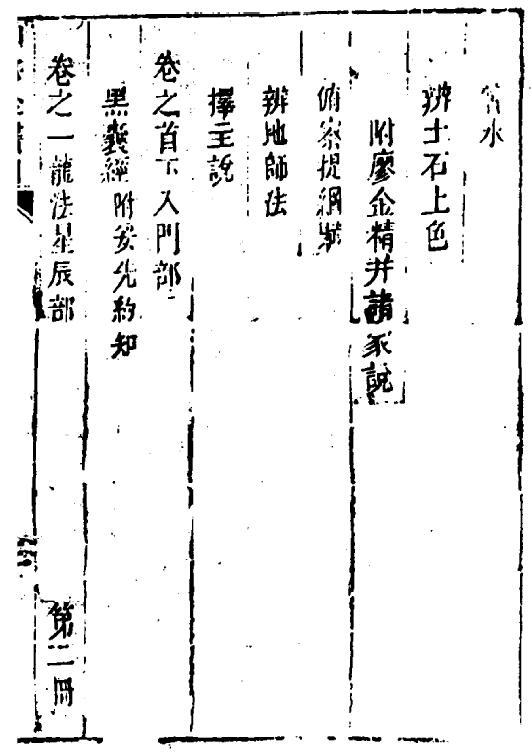 嘗水
辨土石上色
附廖金精并諸家說
俯察提綱辨
辨地師法
擇主說
卷之首下入門部
黑囊經附安先約知
卷之一龍法星辰部 第二冊